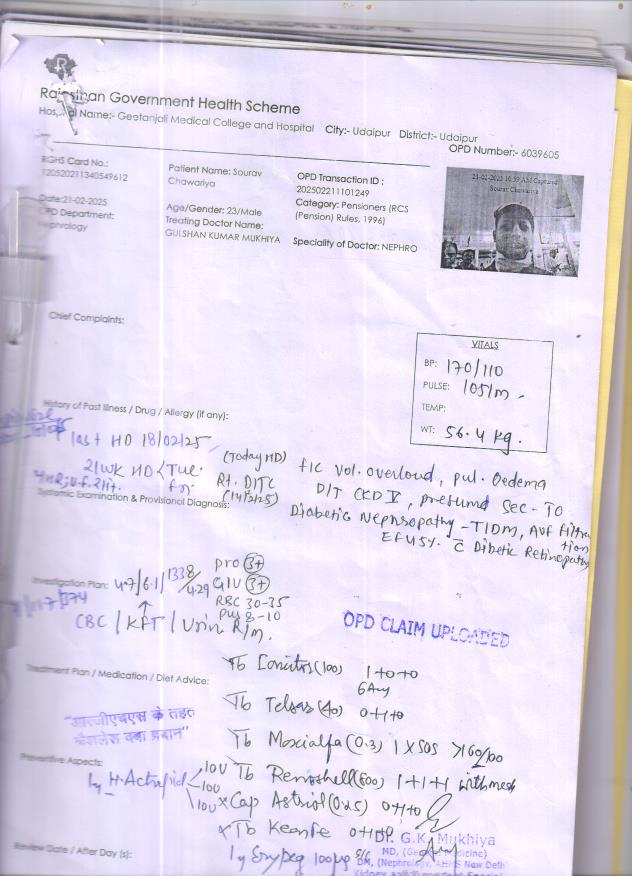 Rajasthan Government Health Scheme
Hospital Name:- Geetanjali Medical College and Hospital City:- Udaipur District:- Udaipur
OPD Number:- 6039605
RGHS Card No.:
120520211340549612
Patient Name: Sourav
Chawariya
OPD Transaction ID :
202502211101249
21-02-2025 10:59 AM Captured
Sourav Chawariya
Date:21-02-2025
OPD Department:
Nephrology
Age/Gender: 23/Male
Treating Doctor Name:
GULSHAN KUMAR MUKHIYA
Category: Pensioners (RCS
(Pension) Rules, 1996)
Speciality of Doctor: NEPHRO
Chief Complaints:
VITALS
BP: 170/110
PULSE: 105/m
TEMP:
WT: 56.4 kg.
History of Past Illness / Drug / Allergy (if any):
last HD 18/02/25
(Today HD)
2/WK HD < Tue.
Fri
Rt. DJTC
f/c Vol. overload, pul. Oedema
D/T CKD V, presumed sec. To
Systemic Examination & Provisional Diagnosis:
Diabetic Nephropathy - T1DM, AVF
EF 45%. c Dibetic Retinopathy
Investigation Plan: 4.7/6.1/1338/429
pro 3+
GLU 3+
RBC 30-35
pus 8-10
CBC / KFT / Urin R/m.
OPD CLAIM UPLOADED
Treatment Plan / Medication / Diet Advice:
Tb (100) 1+0+0
Tb Telsar (40) 0+1+0
Tb Moxialfa (0.3) 1 X SOS >160/100
"आरजीएचएस के तहत
कैशलेस दवा प्रदान"
Preventive Aspects:
Iy H. Actrapid 10U
10U
10U
Tb (800) 1+1+1 with meal
Cap Astriol (0.25) 0+1+0
Tb 0+1+0
Dr. G.K. Mukhiya
MD, (General Medicine)
DM, (Nephrology, AIIMS New Delhi
Review Date / After Day (s):
Iy 100µg S/C